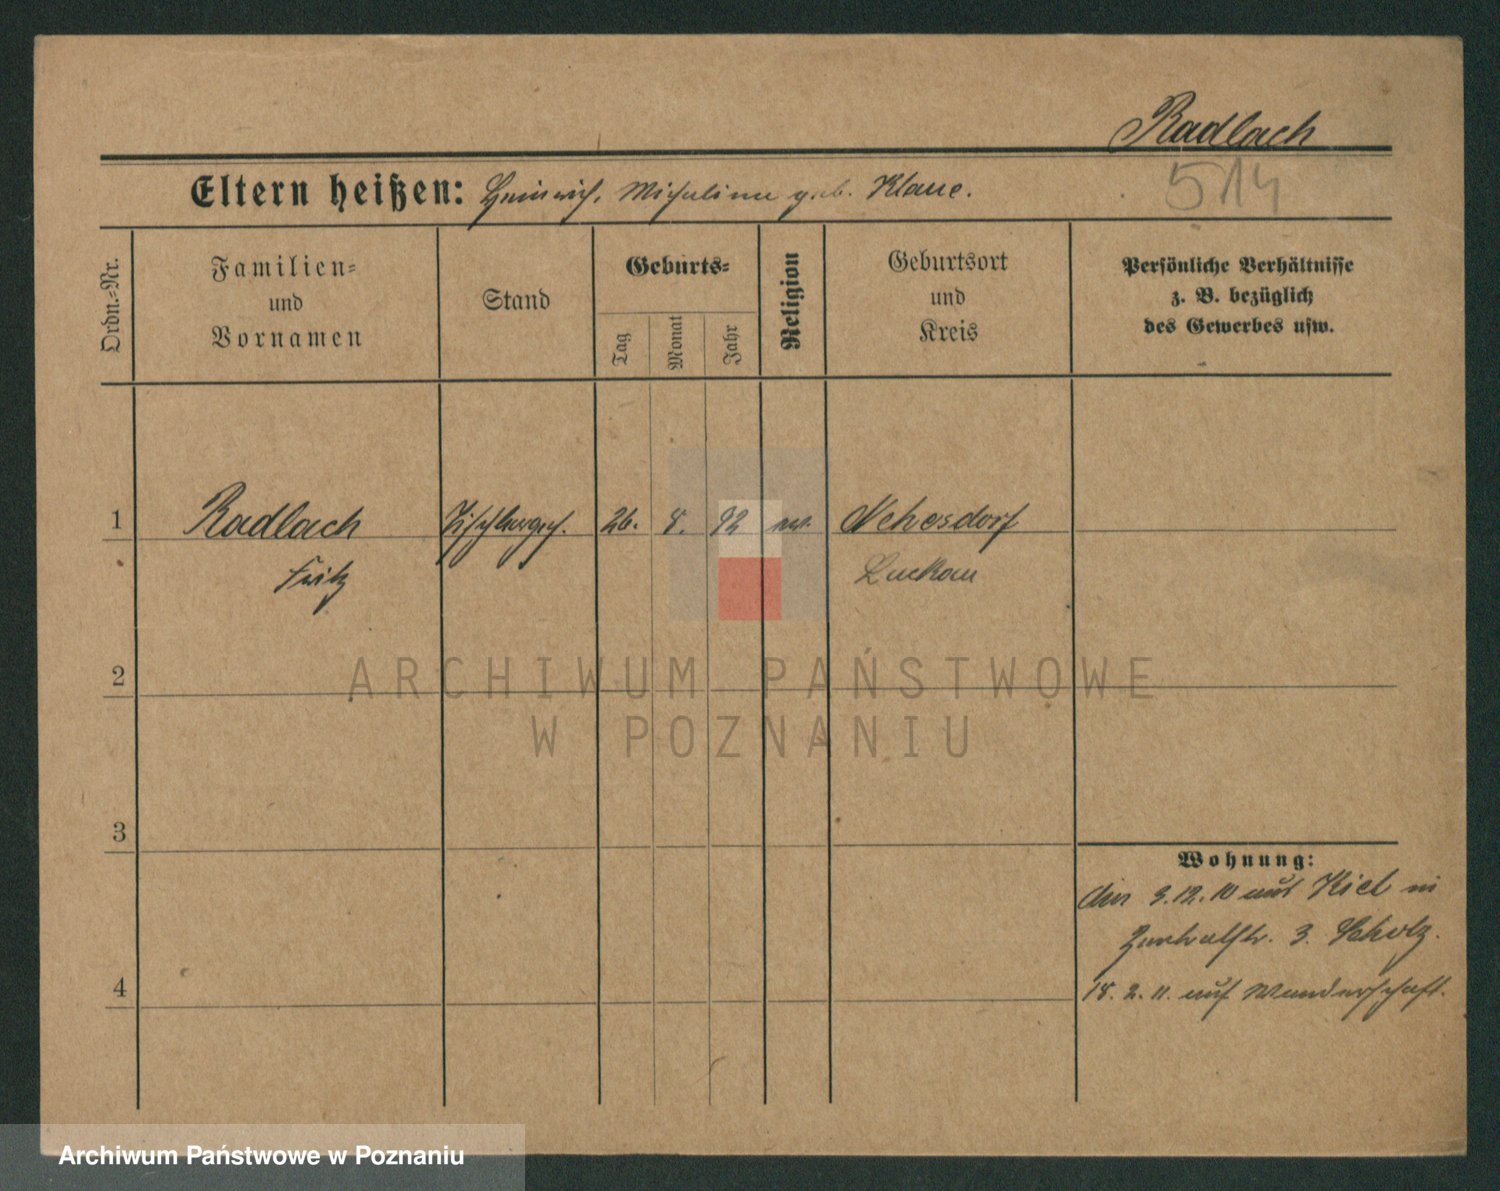 Radlach
514
Eltern heißen: Heinrich, Michaline geb. Klaue.
Ordn.-Nr.
Familien-
und
Vornamen
Stand
Geburts-
Tag
Monat
Jahr
Religion
Geburtsort
und
Kreis
Persönliche Verhältnisse
z. B. bezüglich
des Gewerbes usw.
1 Radlach Tischlerges. 26. 8. 92 Nehesdorf
Fritz Luckau
2
ARCHIWUM PAŃSTWOWE
W POZNANIU
3
Wohnung:
3.12.10 aus Kiel in
3. Scholz.
4
18. 2. 11. auf Wanderschaft.
Archiwum Państwowe w Poznaniu